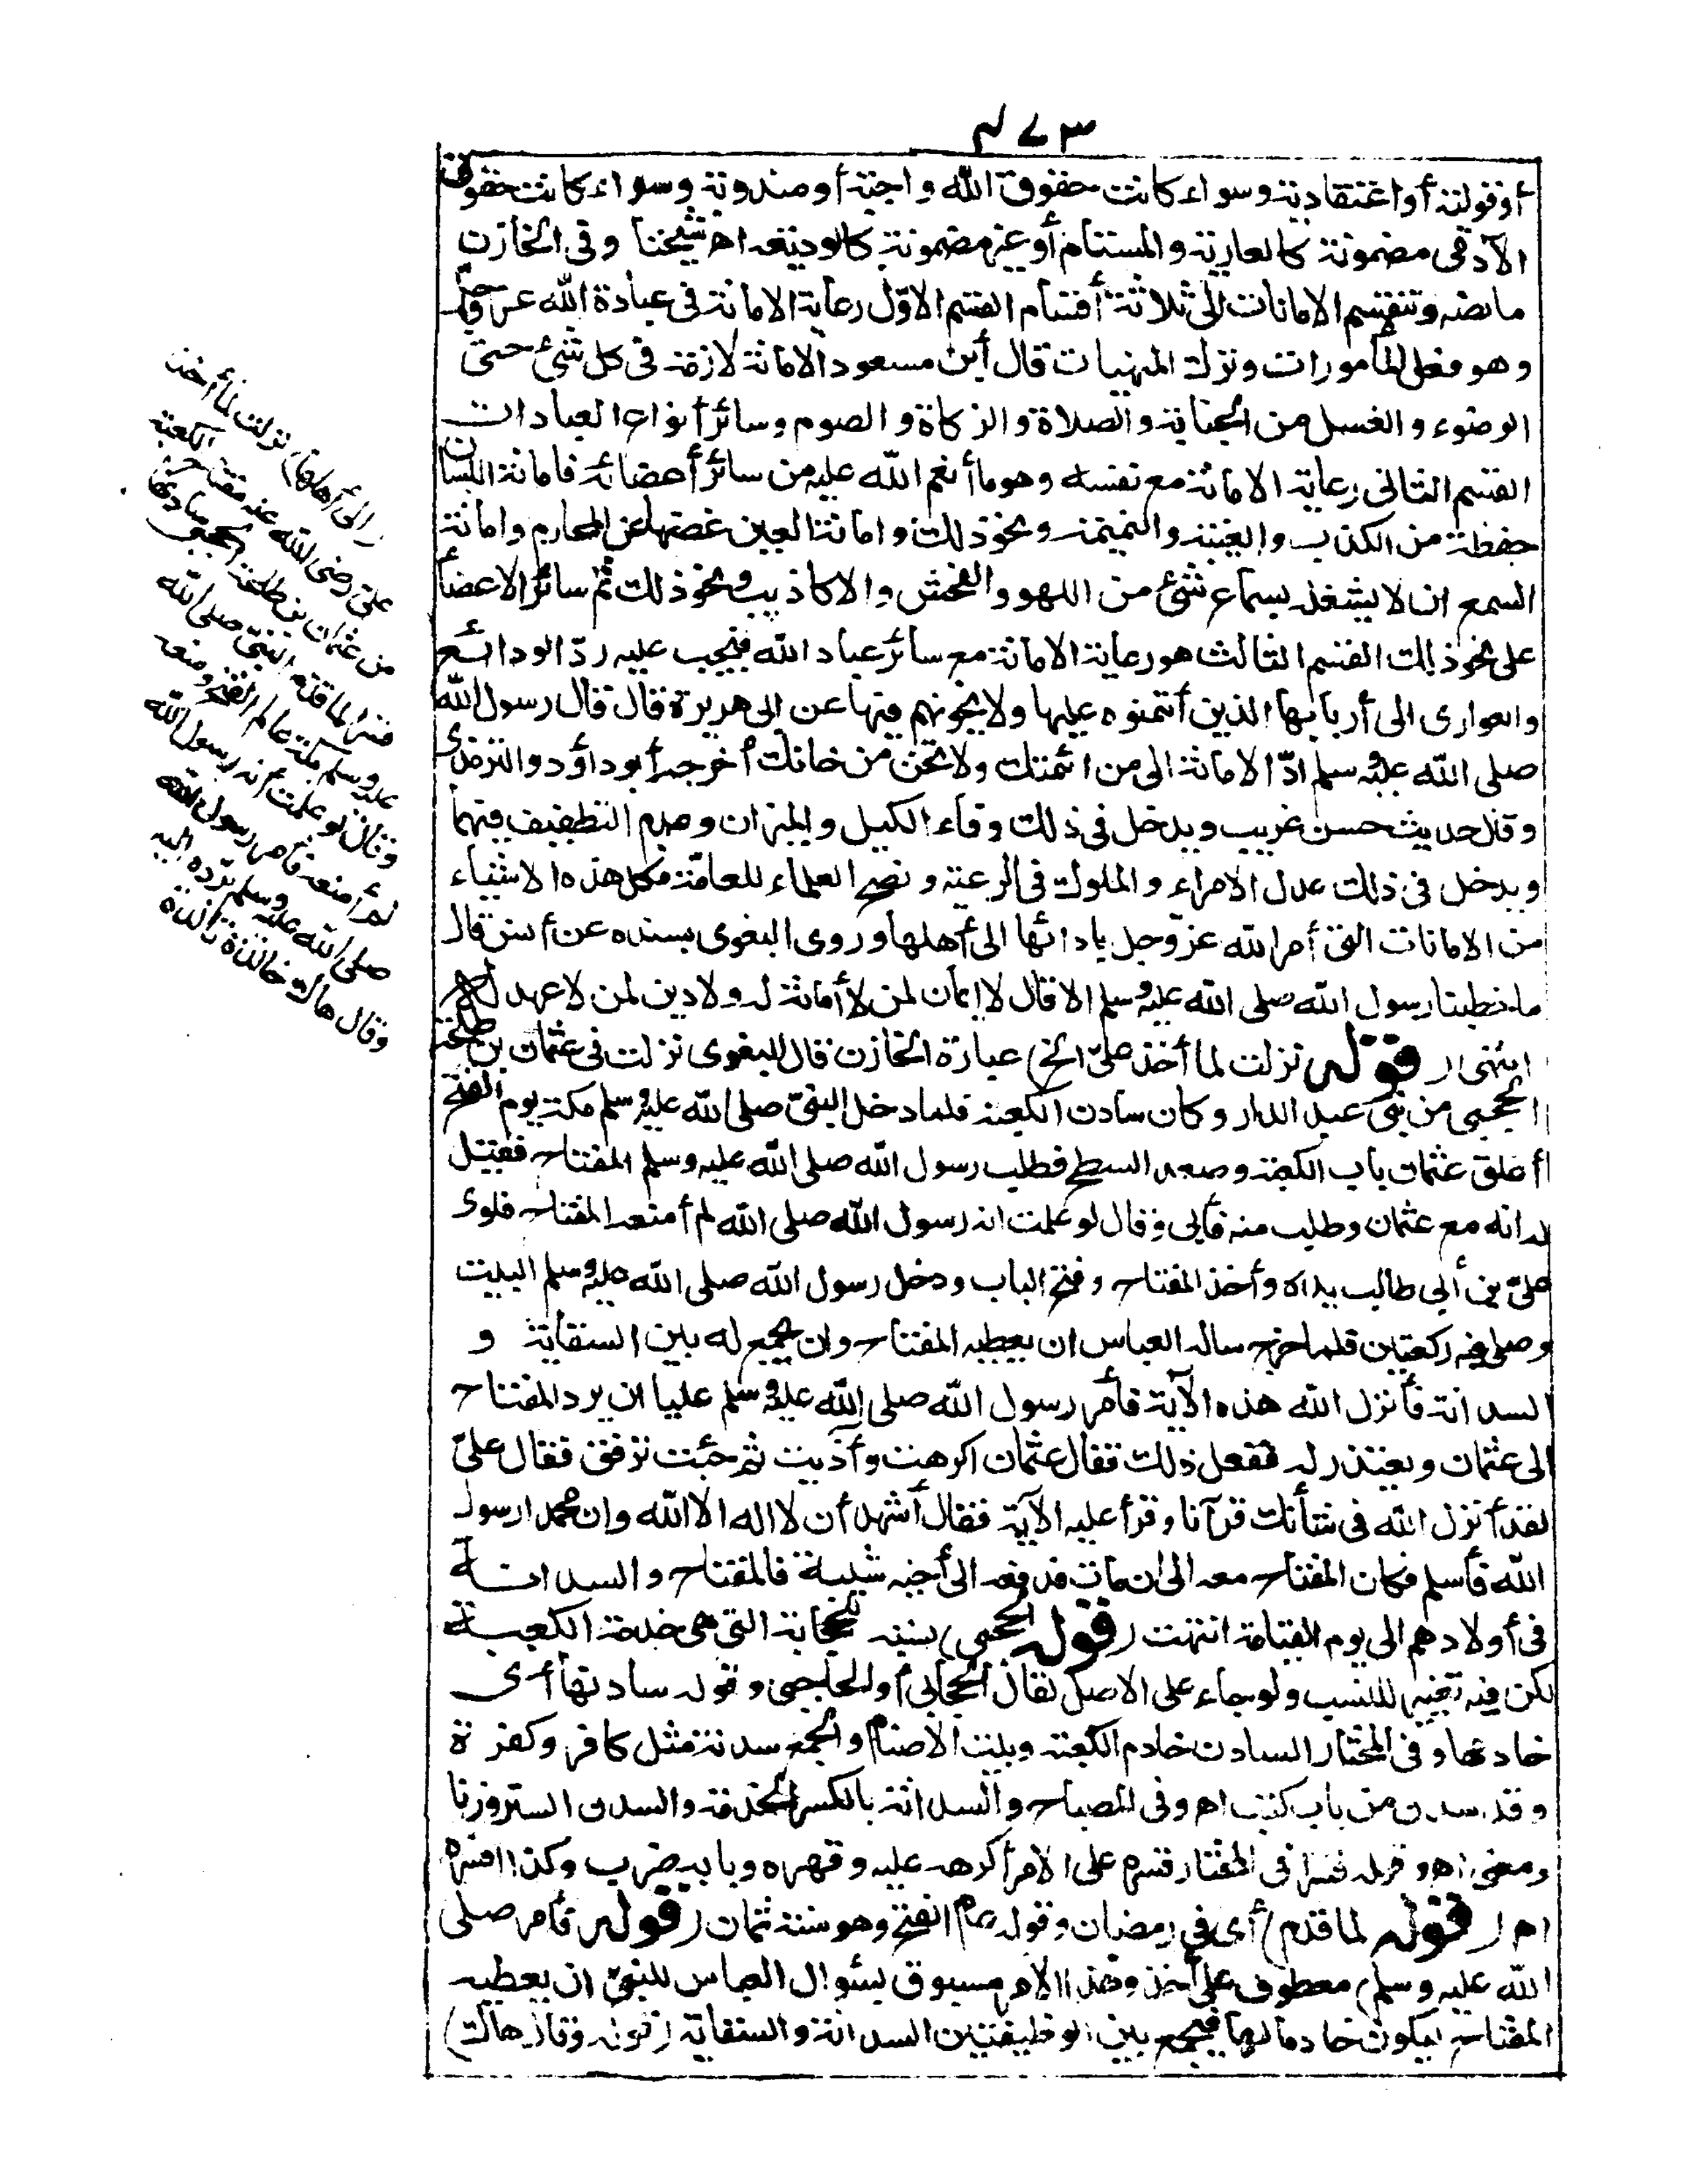 ٤٧٣
أو قولية أو اعتقادية وسواء كانت حقوق الله واجبة أو مندوبة وسواء كانت حقوق
الآدمى مضمونة كالعارية والمستام أو غير مضمونة كالوديعة اه شيخنا وفى الخازن
ما نصه وتنقسم الامانات الى ثلاثة أقسام القسم الاوّل رعاية الامانة فى عبادة الله عز وجل
وهو فعل المأمورات وترك المنهيات قال أبن مسعود الامانة لازمة فى كل شئ حتى
الوضوء والغسل من الجنابة والصلاة والزكاة والصوم وسائر أنواع العبادات
القسم الثانى رعاية الامانة مع نفسه وهو ما أنعم الله عليه من سائر أعضائه فامانة اللسان
حفظه من الكذب والغيبة والنميمة ونحو ذلك وامانة العين غضها عن المحارم وامانة
السمع ان لا يشغله بسماع شئ من اللهو والفحش والاكاذيب ونحو ذلك ثم سائر الاعضأ
على نحو ذلك القسم الثالث هو رعاية الامانة مع سائر عباد الله فيجب عليه ردّ الودائع
والعوارى الى أربابها الذين أئتمنوه عليها ولا يخونهم فيها عن ابى هريرة قال قال رسول الله
صلى الله عليه وسلم ادّ الامانة الى من ائتمنك ولا تخن من خانك أخرجه أبو داؤد والترمذى
وقال حديث حسن غريب ويدخل فى ذلك وفاء الكيل والميزان وعدم التطفيف فيهما
ويدخل فى ذلك عدل الامراء والملوك فى الرعية ونصح العلماء للعامّة فكل هذه الاشياء
من الامانات التى أمر الله عز وجل بادائها الى أهلها وروى البغوى بسنده عن أنس قال
ما خطبنا رسول الله صلى الله عليه وسلم الا قال لا ايمان لمن لا أمانة له ولا دين لمن لا عهد له اه
انتهى (قوله نزلت لما أخذ علىّ الخ) عبارة الخازن قال البغوى نزلت فى عثمان بن طلحة
الحجبى من بنى عبد الدار وكان سادن الكعبة فلما دخل النبىّ صلى الله عليه وسلم مكة يوم الفتح
أغلق عثمان باب الكعبة وصعد السطح فطلب رسول الله صلى الله عليه وسلم المفتاح فقيل
له انه مع عثمان وطلب منه فأبى وقال لو علمت انه رسول الله صلى الله لم أمنعه المفتاح فلوى
علىّ بن أبى طالب يداه وأخذ المفتاح وفتح الباب ودخل رسول الله صلى الله عليه وسلم البيت
وصلى فيه ركعتين فلما خرج ساله العباس ان يعطيه المفتاح وان يجمع له بين السقاية و
السدانة فأنزل الله هذه الآية فأمر رسول الله صلى الله عليه وسلم عليا ان يرد المفتاح
الى عثمان ويعتذر له ففعل ذلك فقال عثمان اكرهت وأذيت ثم جئت ترفق فقال علىّ
لقد أنزل الله فى شأنك قرآنا وقرأ عليه الآية فقال أشهد أن لا اله الا الله وان محمدا رسول
الله فأسلم فكان المفتاح معه الى ان مات فدفعه الى أخيه شيبة فالمفتاح والسدانة
فى أولادهم الى يوم القيامة انتهت (قوله الحجبى) نسبة للحجابة التى هى خدمة الكعبة
لكن فيه تغيير للنسب ولو جاء على الاصل لقال الحجابى أو الحاجبى وقوله سادنها أى
خادمها وفى المختار السادن خادم الكعبة وبيت الاصنام والجمع سدنة مثل كافر وكفرة
وقد سدن من باب كتب اه وفى المصباح والسدانة بالكسر الخدمة والسدن الستر وزنا
ومعنى اه وقوله قسرا فى المختار قسره على الامر أكرهه عليه وقهره وبابه ضرب وكذا اقتسره
اه (قوله لما قدم) أى فى رمضان وقوله عام الفتح وهو سنة ثمان (قوله فأمر صلى
الله عليه وسلم) معطوف على أخذ وهذا الامر مسبوق بسئوال العباس للنبىّ ان يعطيه
المفتاح ليكون خادما لها فيجمع بين الوظيفتين السدانة والسقاية (قوله وقال هاك)
(الى أهلها) نزلت لما أخذ
علىّ رضى الله عنه مفتاح الكعبة
من عثمان بن طلحة الحجبى سادنها
قسرا لما قدم النبىّ صلى الله
عليه وسلم مكة عام الفتح ومنعه
وقال لو علمت أنه رسول الله
لم أمنعه فأمر رسول الله
صلى الله عليه وسلم بردّه اليه
وقال هاك خالدة تالدة